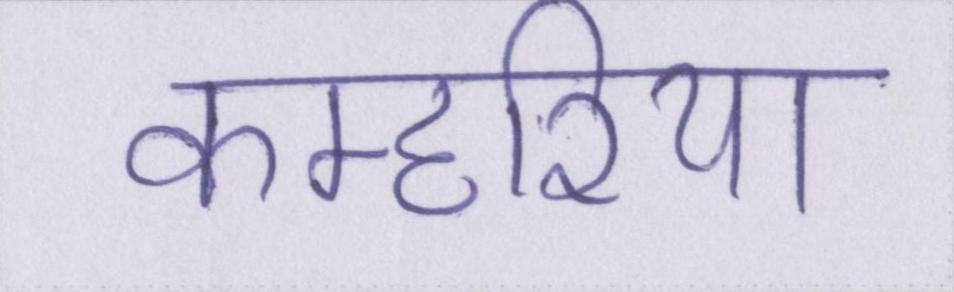 कम्हरिया